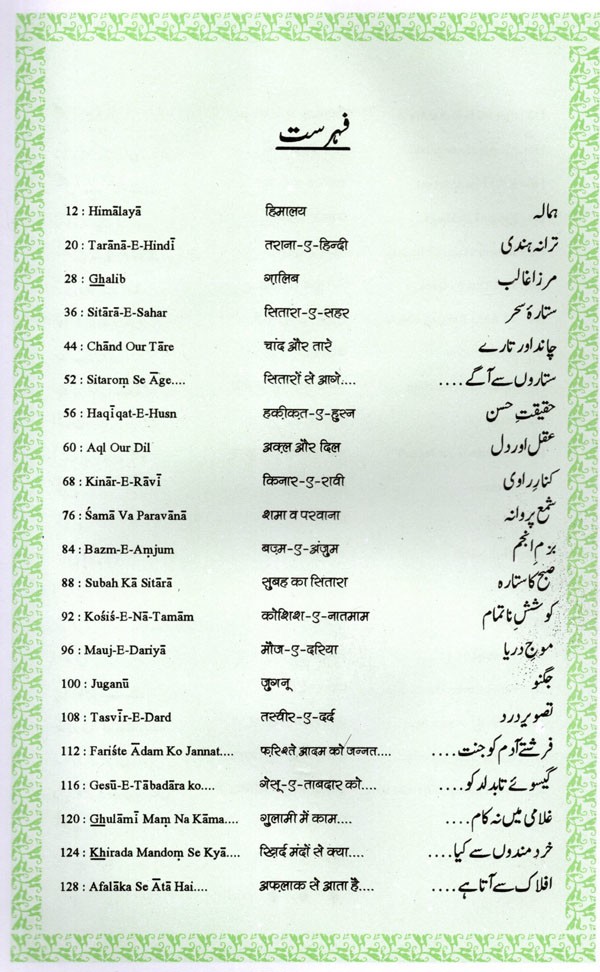 فہرست
12 : Himālayā हिमालय ہمالہ
20 : Tarānā-E-Hindī तराना-ए-हिन्दी ترانہ ہندی
28 : Ghalib ग़ालिब مرزا غالب
36 : Sitārā-E-Sahar सितारा-ए-सहर ستارۂ سحر
44 : Chānd Our Tāre चांद और तारे چاند اور تارے
52 : Sitaroṃ Se Āge.... सितारों से आगे.... ستاروں سے آگے ....
56 : Haqīqat-E-Husn हक़ीक़त-ए-हुस्न حقیقتِ حسن
60 : Aql Our Dil अक़्ल और दिल عقل اور دل
68 : Kinār-E-Rāvī किनार-ए-रावी کنارِ راوی
76 : Śamā Va Paravānā शमा व परवाना شمع پروانہ
84 : Bazm-E-Aṃjum बज़्म-ए-अंजुम بزمِ انجم
88 : Subah Kā Sitārā सुबह का सितारा صبح کا ستارہ
92 : Kośiś-E-Nā-Tamām कोशिश-ए-नातमाम کوششِ ناتمام
96 : Mauj-E-Dariyā मौज-ए-दरिया موجِ دریا
100 : Juganū जुगनू جگنو
108 : Tasvīr-E-Dard तस्वीर-ए-दर्द تصویر درد
112 : Fariśte Ādam Ko Jannat.... फ़रिश्ते आदम को जन्नत.... فرشتے آدم کو جنت ....
116 : Gesū-E-Tābadāra ko.... गेसू-ए-ताबदार को.... گیسوئے تابدلد کو ....
120 : Ghulāmī Maṃ Na Kāma.... गुलामी में काम.... غلامی میں نہ کام ....
124 : Khirada Mandoṃ Se Kyā.... ख़िर्द मंदों से क्या.... خرد مندوں سے کیا ....
128 : Afalāka Se Ātā Hai.... अफ़लाक से आता है.... افلاک سے آتا ہے ....